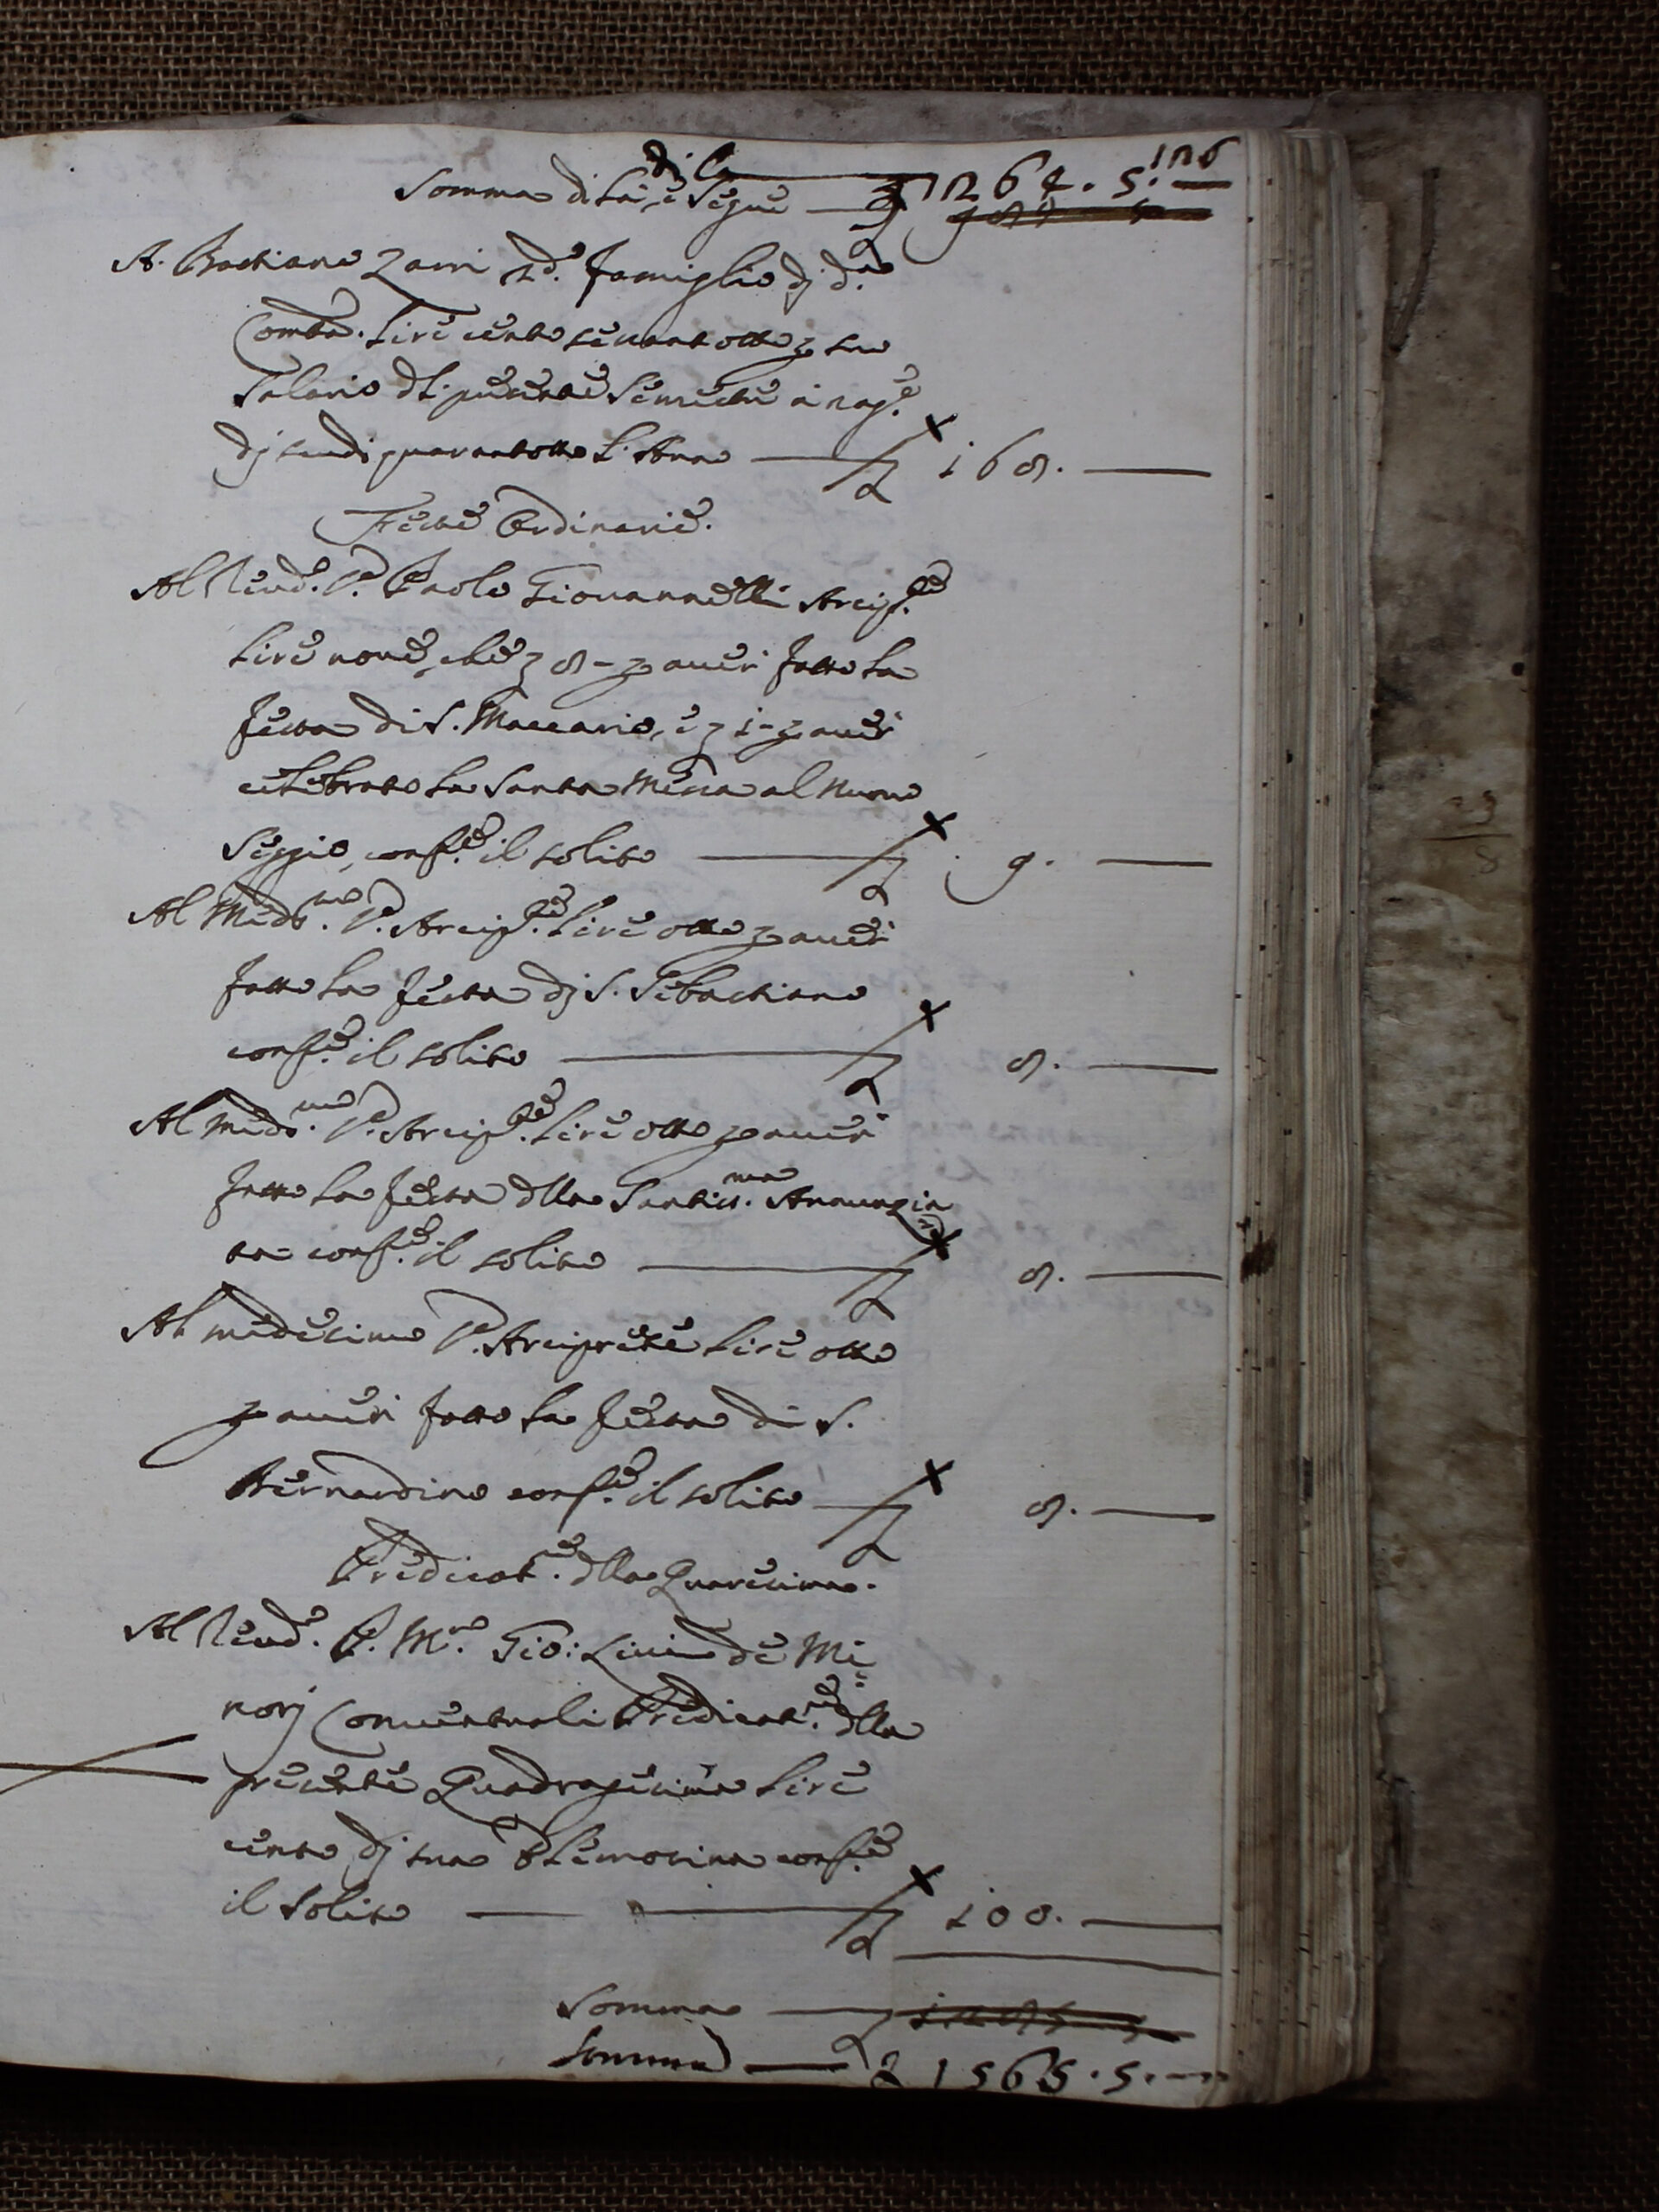 126
di là 1264. 5. —
Somma di là, e segue —
A. Bastiano Zarri 2.do famiglio dj d.ta
Com.tà. Lire cento sessantotto p suo
Salario dl presente Semestre a rag.e
dj scudi quarantotto l'Anno — 168. —
Feste Ordinarie.
Al Reud.o P. Paolo Giouannelli Arcip.te
Lire noue, cioè 8 - p auer fatto la
festa di S. Maccario, e 1 - p auer
celebrato la Santa Messa al nuouo
Seggio, conf.e il solito — 9. —
Al Med.mo P. Arcip.te Lire otto p auer
fatto la festa dj S. Sebastiano
conf.e il solito — 8. —
Al med.mo P. Arcip.te Lire otto p auer
fatto la festa dlla Santiss.ma Anunzia
ta conf.e il solito — 8. —
Al medesimo P. Arciprete Lire otto
p auer fatto la festa di S.
Bernardino conf.e il solito — 8. —
Predicat.re dlla Quaresima.
Al Reud.o P. M.ro Gio: Liui de Mi
norj Conuentuali Predicat.re dlla
presente Quadragesima Lire
cento dj sua Elemosina conf.e
il solito — 100. —
Somma —
Somma — 1565. 5. —